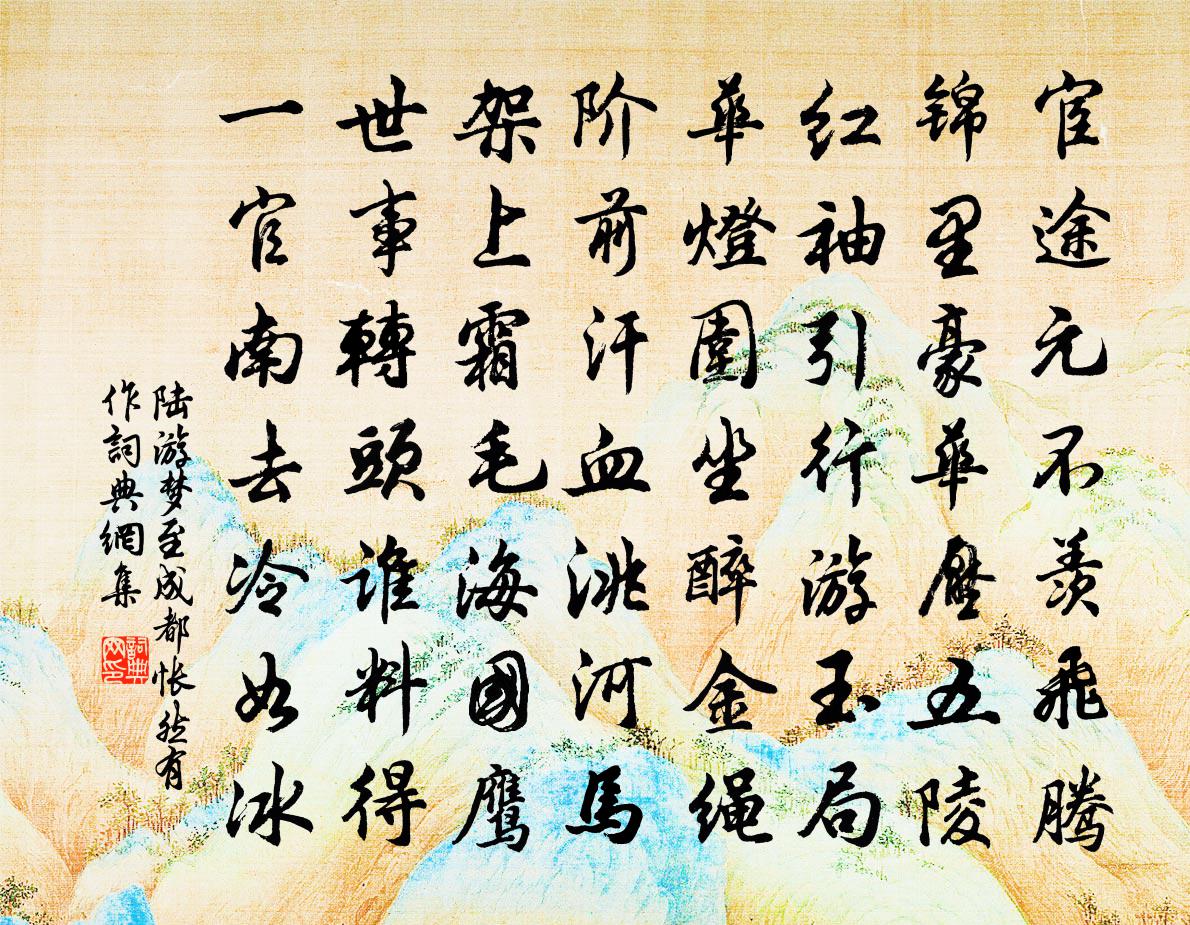 宦途元不羡飛騰
锦里豪華壓五陵
红袖引行游玉局
華燈圍坐醉金绳
阶前汗血洮河馬
架上霜毛海國鹰
世事轉頭谁料得
一官南去冷如冰
陆游梦至成都怅然有
作詞典網集
詞典
网印